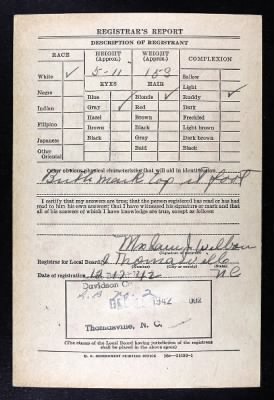 REGISTRAR'S REPORT
DESCRIPTION OF REGISTRANT
RACE HEIGHT (Approx.) WEIGHT (Approx.) COMPLEXION
White ✓ 5-11 153 Sallow
EYES HAIR Light
Negro Blue Blonde ✓ Ruddy ✓
Indian Gray ✓ Red Dark
Filipino Hazel Brown Freckled
Brown Black Light brown
Japanese Black Gray Dark brown
Other Oriental Bald Black
Other obvious physical characteristics that will aid in identification
Birth mark top foot
I certify that my answers are true; that the person registered has read or has had
read to him his own answers; that I have witnessed his signature or mark and that
all of his answers of which I have knowledge are true, except as follows:
Mrs J. Wilson
(Signature of registrar)
Registrar for Local Board 2 Thomasville
(Number) (City or county)
Date of registration 12-17-42 NC
Davidson
1942
Thomasville, N. C.
(The stamp of the Local Board having jurisdiction of the registrant
shall be placed in the above space)
U. S. GOVERNMENT PRINTING OFFICE